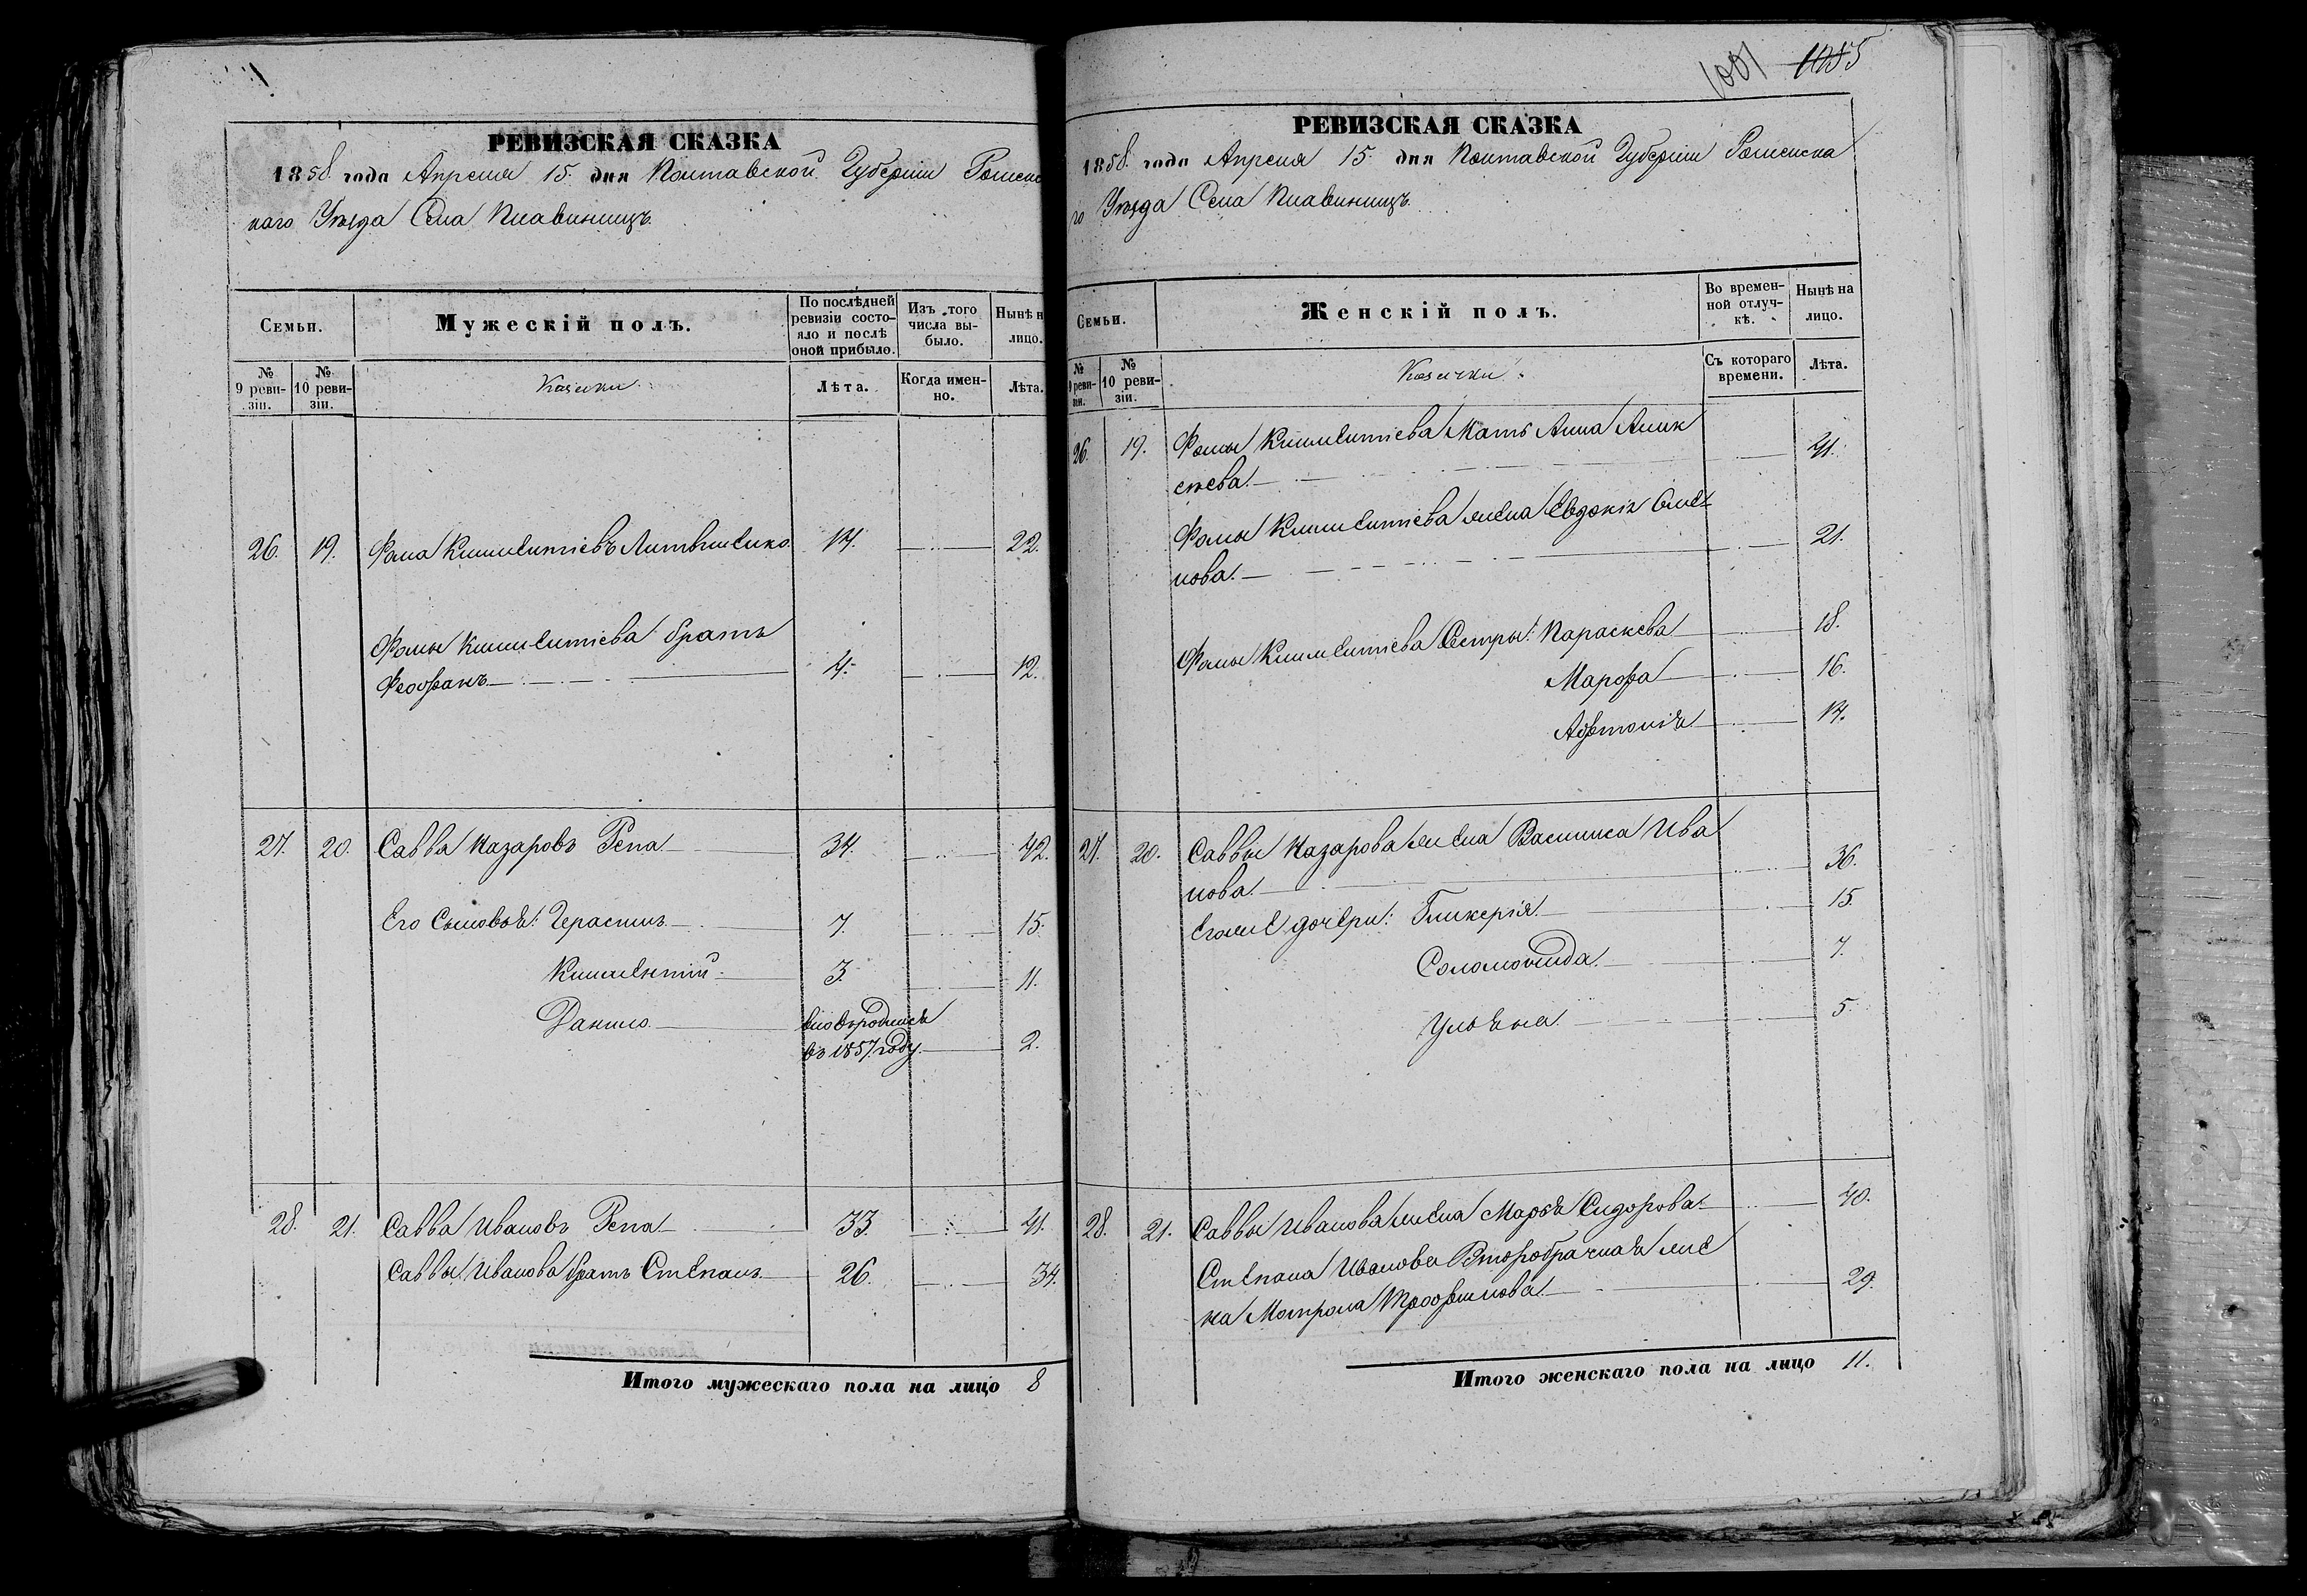 РЕВИЗСКАЯ СКАЗКА
1858. года Апреля 15. дня Полтавской Губерніи Роменс
каго Уезда Села Плавинищъ.
Семьи.
Мужескій полъ.
По послѣдней ревизіи состо-
яло и послѣ оной прибыло.
Изъ того числа вы-
было.
Нынѣ н
лицо.
№ 9 реви-
зіи.
№ 10 реви-
зіи.
Козаки.
Лѣта.
Когда имен-
но.
Лѣта.
26. 19. Фома Климентіевъ Литвиненко. 14. 22.
Фомы Климентіева братъ
Феофанъ 4. 12.
27. 20. Савва Назаровъ Репа 34. 42.
Его Сыновья: Герасимъ 7. 15.
Климентий 3. 11.
Данило вновьродился
въ 1857. году. 2.
28. 21. Савва Ивановъ Репа 33. 41.
Саввы Иванова братъ Степанъ 26. 34.
Итого мужескаго пола на лицо 8
1001 1085
РЕВИЗСКАЯ СКАЗКА
1858. года Апреля 15. дня Полтавской Губерніи Роменска
го Уезда Села Плавинищъ.
Семьи.
Женскій полъ.
Во времен-
ной отлуч-
кѣ.
Нынѣ на
лицо.
№ 9 реви-
зіи.
№ 10 реви-
зіи.
Козачки.
Съ котораго
времени.
Лѣта.
26. 19. Фомы Климентіева Мать Анна Алик
сеева. 41.
Фомы Климентіева жена Евдокія Симе
нова. 21.
Фомы Климентіева Сестры: Параскева 18.
Марфа 16.
Афтонія 14.
27. 20. Саввы Назарова жена Василиса Ива
нова. 36.
Егоже дочери: Гликерія. 15.
Соломонида. 7.
Ульяна. 5.
28. 21. Саввы Иванова жена Марья Сидорова. 40.
Степана Иванова Второбрачная же
на Мотрона Трофимова 29.
Итого женскаго пола на лицо 11.